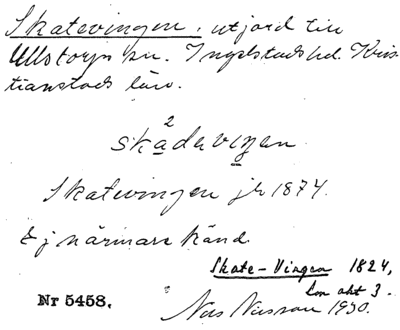 Skatevingen. utjord till
Ullstorps sn. Ingelstads hd. Kris
tianstads län.
2
skadavingen
Skatevingen jb 1874.
Ej närmare känd.
Skate-Vingen 1824,
Lm akt 3.
Nr 5458.
Nils Nilsson 1930.